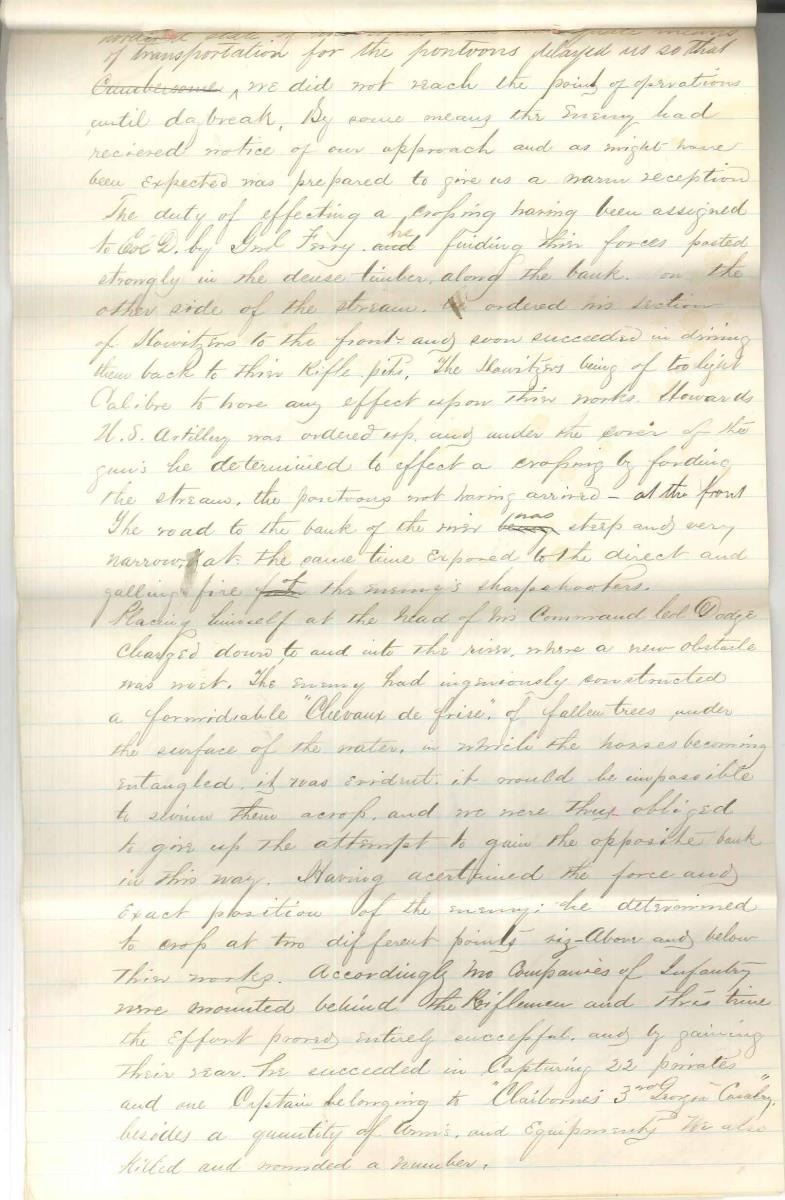 of transportation for the pontoons delayed us so that
Cumbersome ^ we did not reach the point of operations
until daybreak. By some means the Enemy had
recieved notice of our approach and as might have
been Expected was prepared to give us a warm reception
The duty of effecting a crossing having been assigned
to Col D. by Genl Ferry. and he finding thier forces posted
strongly in the dense timber, along the bank. on the
other side of the stream. ordered his section
of Howitzers to the front and soon succeeded in driving
them back to thier Rifle pits. The Howitzers being of too light
Calibre to have any effect upon thier works. Howards
U.S. Artillery was ordered up. and under the cover of the
gun's he determined to effect a crossing by fording
the stream. the pontoons not having arrived – at the front
The road to the bank of the river being was steep and very
narrow, at the same time Exposed to the direct and
galling fire of the enemy's sharpshooters.
Placing himself at the head of his Command Col Dodge
Charged down to and into the river, where a new obstacle
was met. The Enemy had ingeniously constructed
a formidiable "Chevaux de frise". of fallen trees under
the surface of the water. in which the horses becoming
Entangled. it was Evident. it would be impossible
to swim them across. and we were thus obliged
to give up the attempt to gain the opposite bank
in this way. Having acertained the force and
Exact position of the enemy; he determined
to cross at two different points viz–Above and below
thier works. Accordingly two Companies of Infantry
were mounted behind the Riflemen and this time
the Effort proved entirely successful. and by gaining
their rear. he succeeded in Capturing 22 privates
and one Captain belonging to "Claibornes 3rd Georgia Cavalry".
besides a quantity of Arms. and Equipments We also
killed and wounded a number.